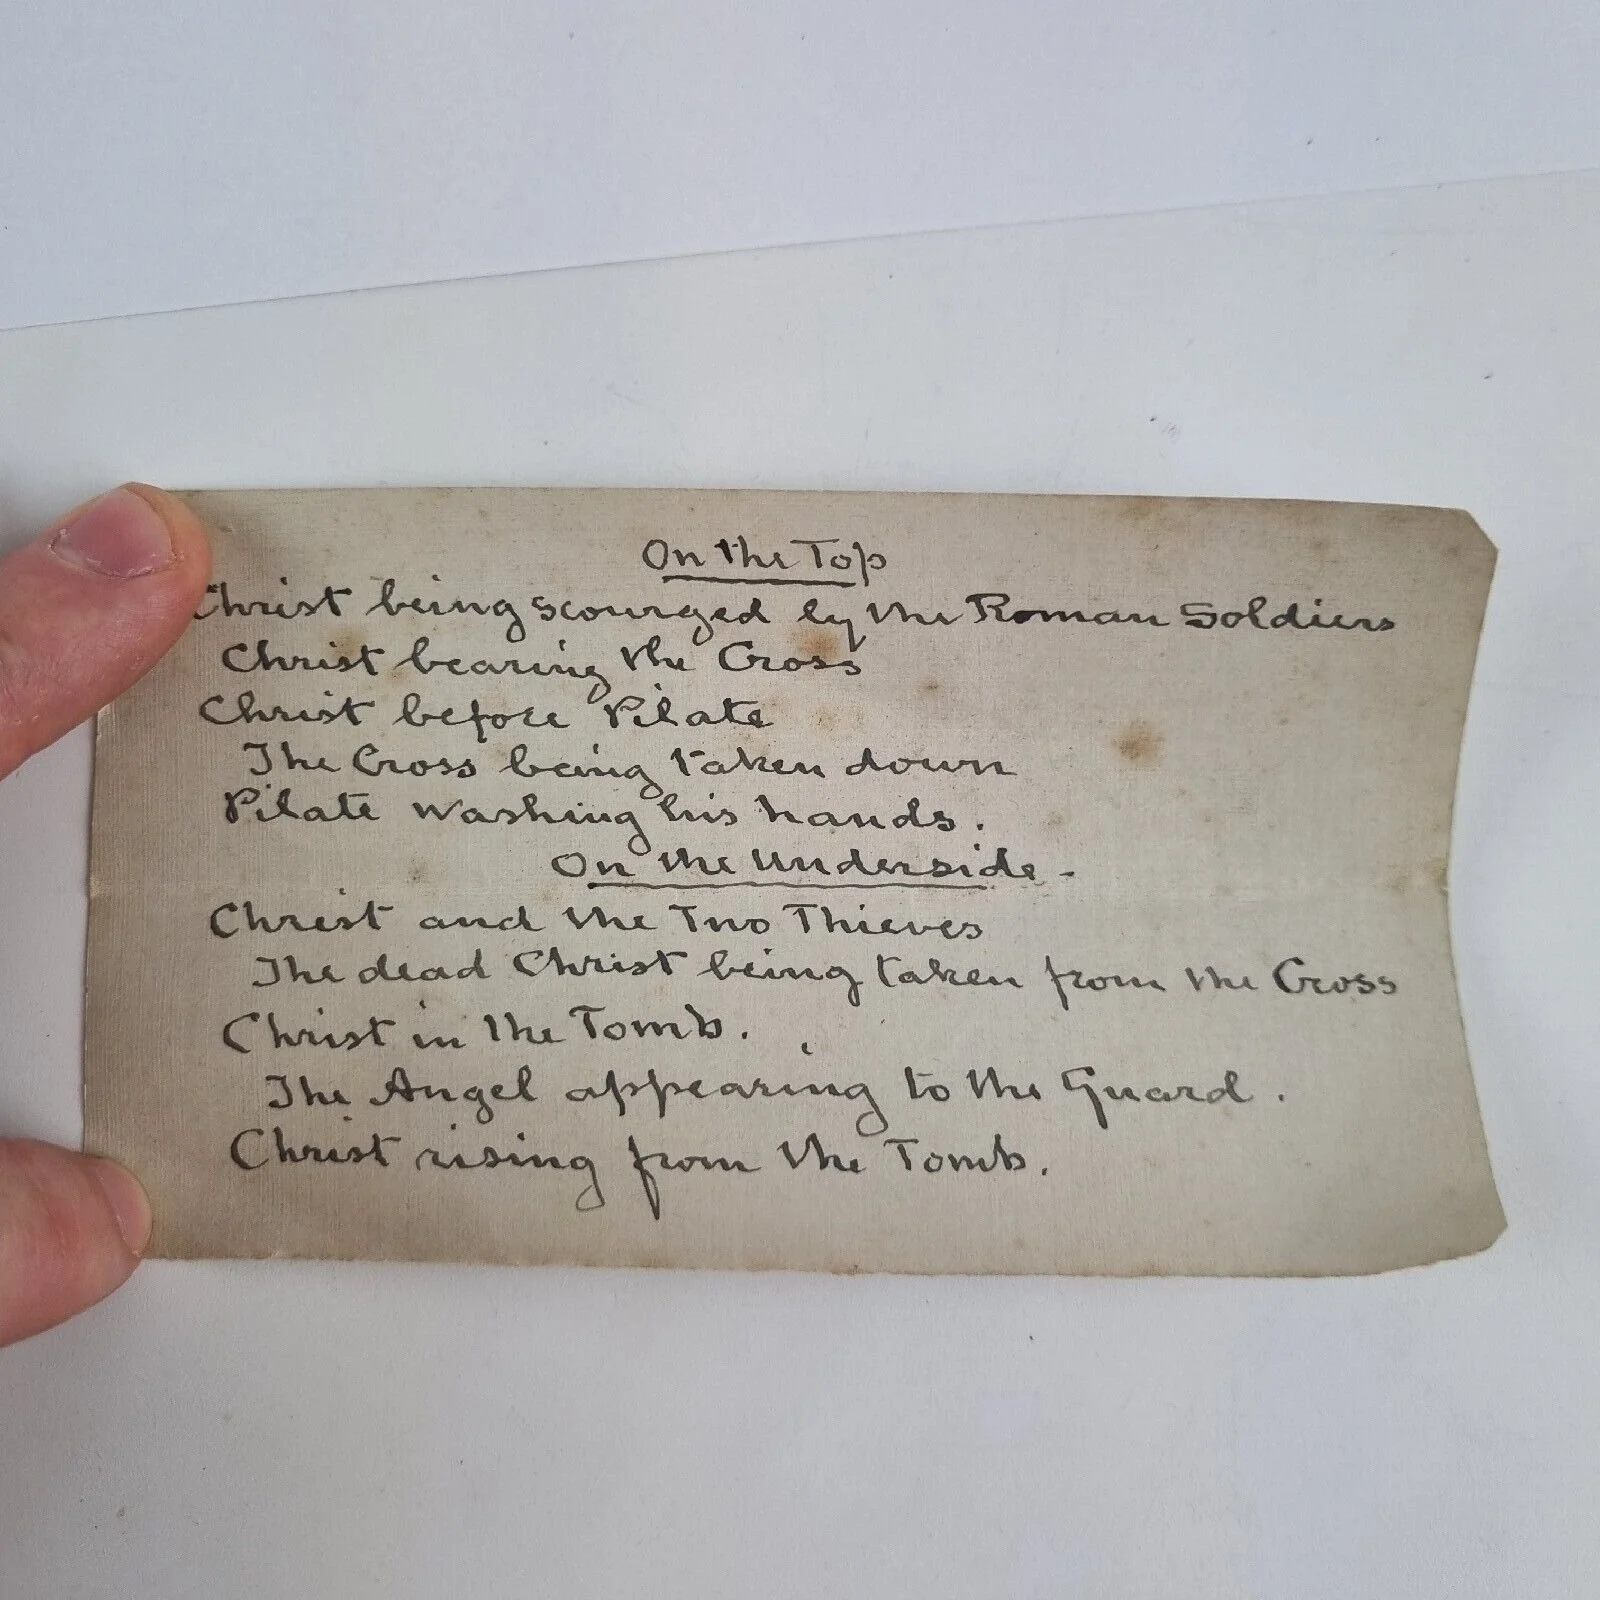 On the Top
Christ being scourged by the Roman Soldiers
Christ bearing the Cross
Christ before Pilate
The Cross being taken down
Pilate washing his hands.
On the Underside -
Christ and the Two Thieves
The dead Christ being taken from the Cross
Christ in the Tomb.
The Angel appearing to the Guard.
Christ rising from the Tomb.